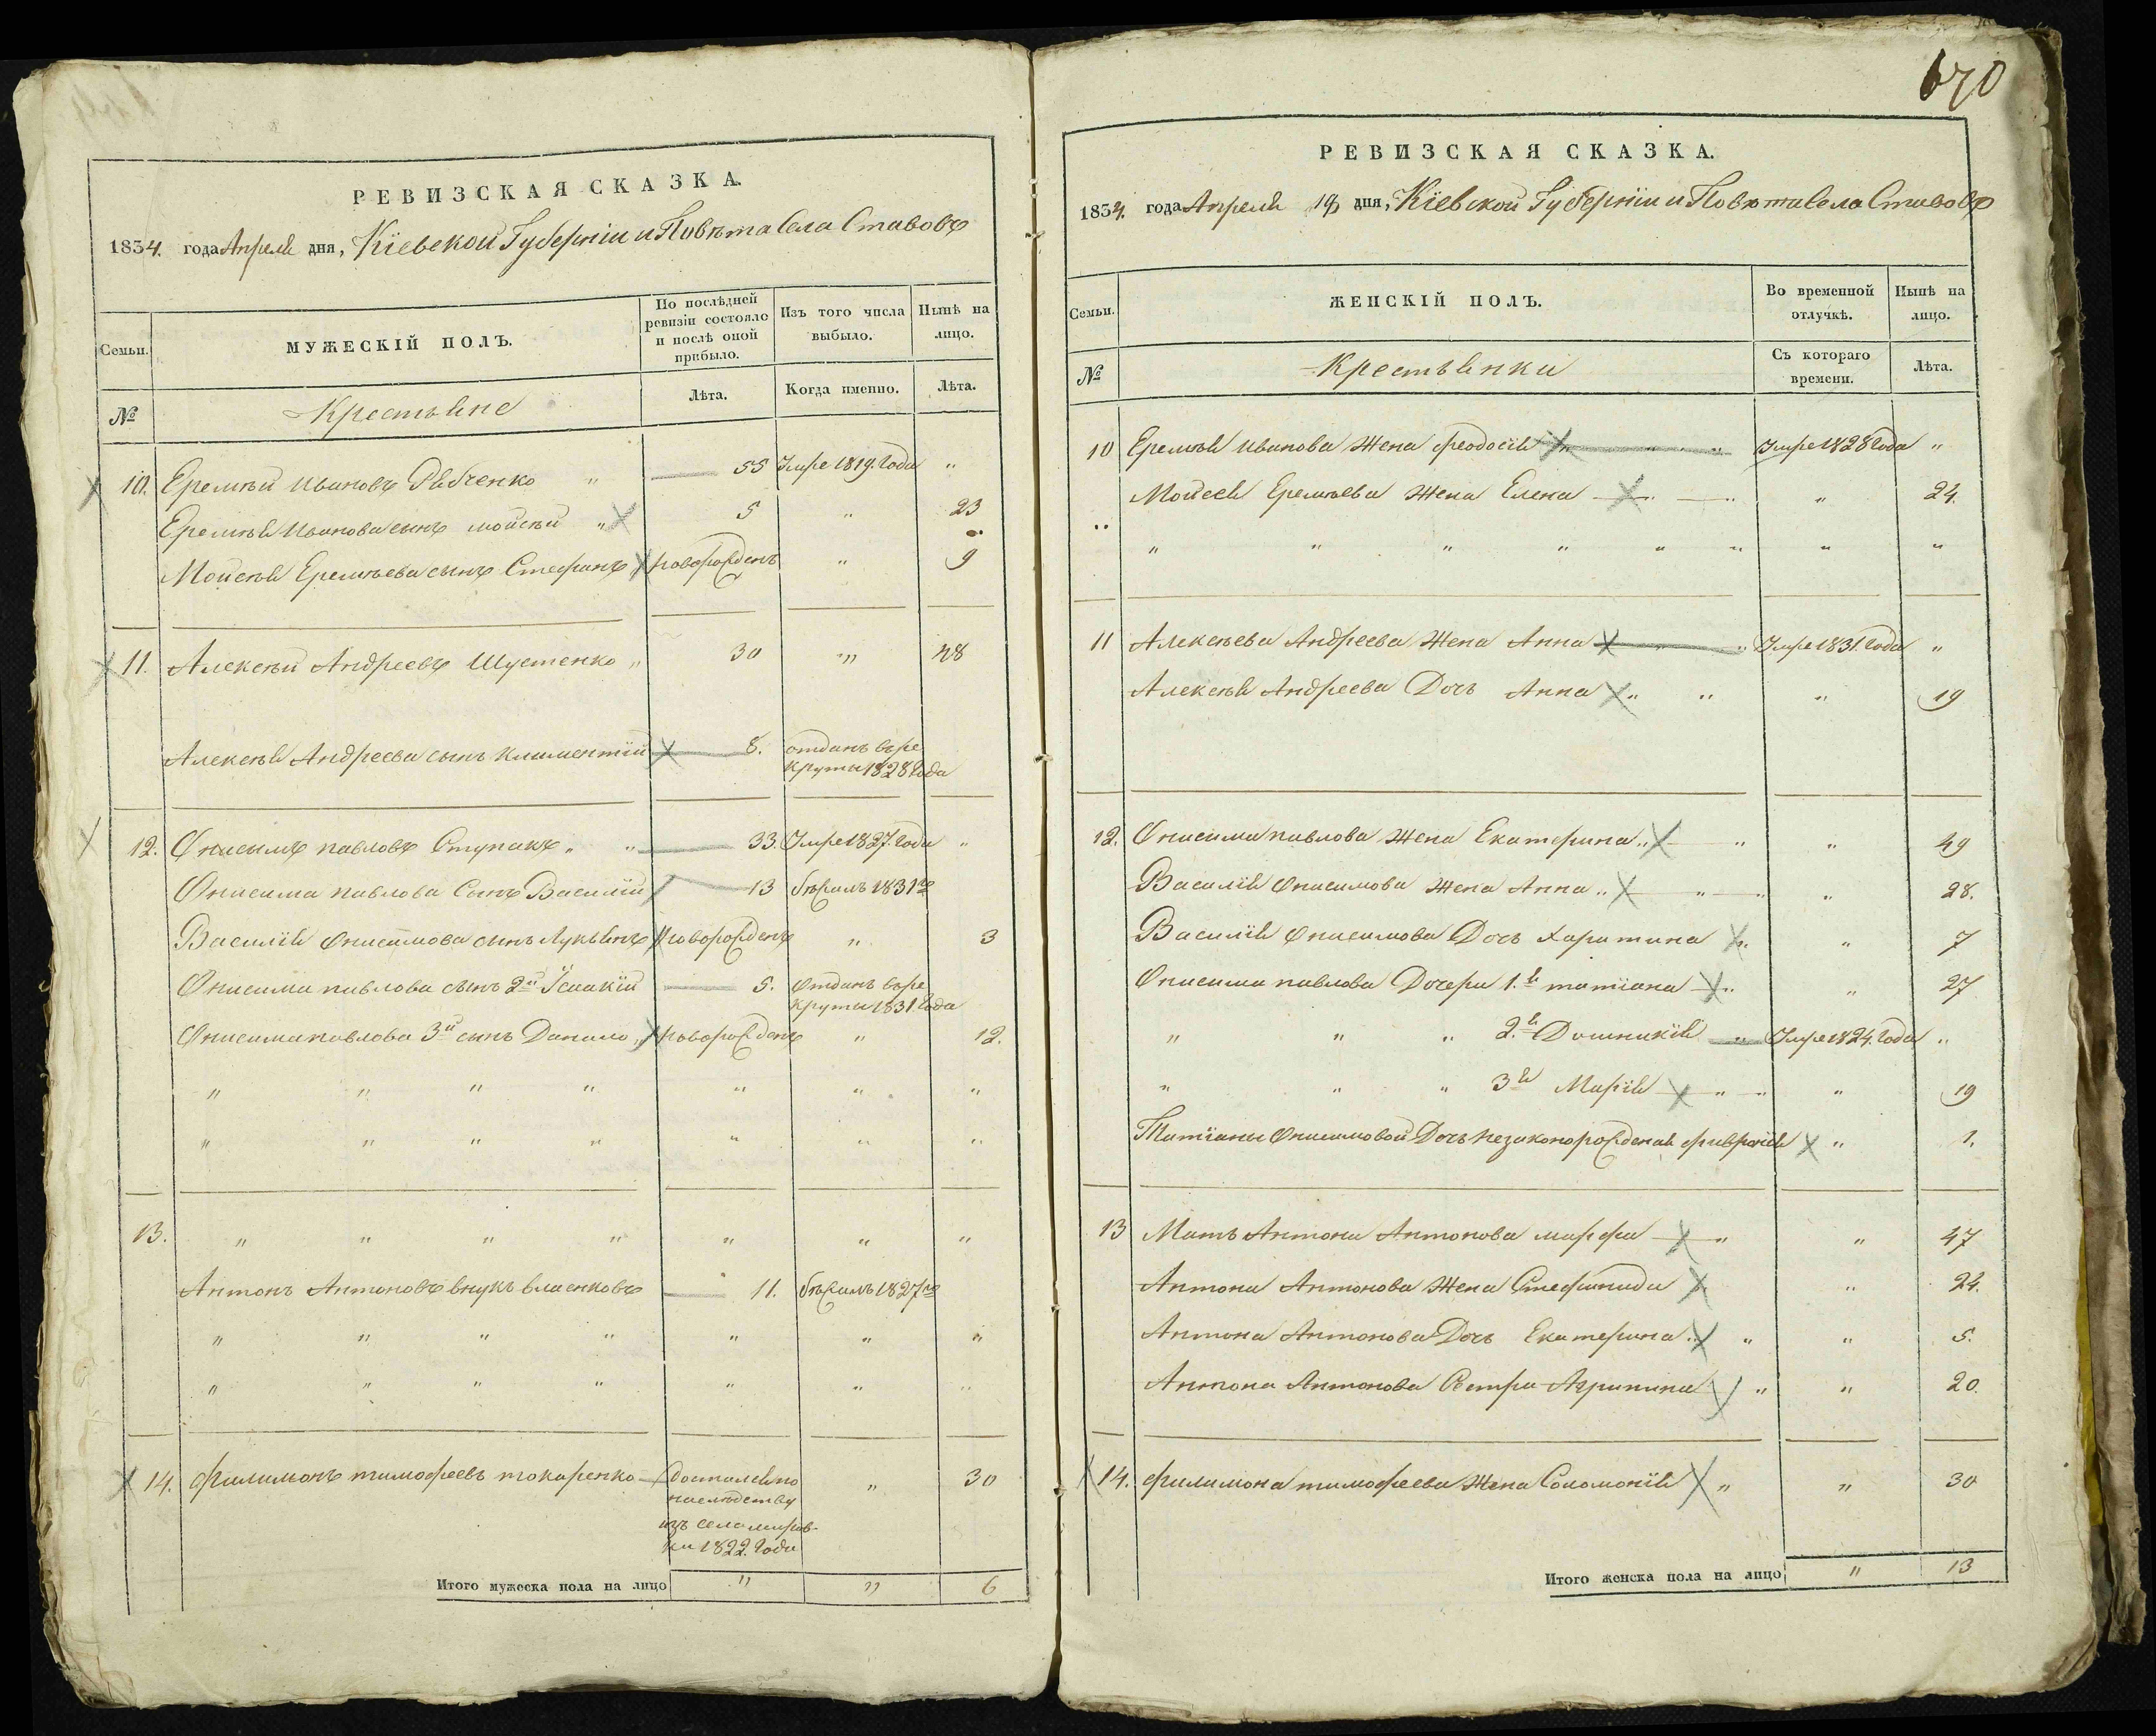 РЕВИЗСКАЯ СКАЗКА.
1834. года Апреля дня, Кіевской Губерніи и Повѣта Села Ставовъ
Семьи.
МУЖЕСКІЙ ПОЛЪ.
По послѣдней ревизіи состояло и послѣ оной прибыло.
Изъ того числа выбыло.
Нынѣ на лицо.
№
Крестьяне
Лѣта.
Когда именно.
Лѣта.
10. Еремѣй Ивановъ Рябченко " 55 Умре 1819. Года "
Еремѣя Иванова сынъ мойсѣй " 5 " 23
Мойсѣя Еремѣева сынъ Стефанъ новорожденъ " 9
11. Алексѣй Андреевъ Шустенко " 30 " 48
Алексѣя Андреева сынъ климентій 8. отданъ въ ре
круты 1828 Года
12. Онисимъ павловъ Ступакъ " " 33. Умре 1827. Года "
Онисима павлова Сынъ Василій 13 бѣжалъ 1831го
Василія Онисимова сынъ Лукьянъ новорожденъ " 3
Онисима павлова сынъ 2й Ісаакій 5. Отданъ въ ре
круты 1831. Года
Онисима павлова 3й сынъ Данило " новорожденъ " 12.
" " " " " " "
" " " " " " "
13. " " " " " " "
Антонъ Антоновъ внукъ власенковъ 11. бѣжалъ 1827го
" " " " " " "
" " " " " " "
14. филимонъ тимофеевъ токаренко Достался по " 30
наслѣдству
изъ села миров-
ки 1822. Года
Итого мужеска пола на лицо " " 6
670
РЕВИЗСКАЯ СКАЗКА.
1834. года Апреля 19 дня, Кіевской Губерніи и Повѣта Села Ставовъ
Семьи.
ЖЕНСКІЙ ПОЛЪ.
Во временной отлучкѣ.
Нынѣ на лицо.
№
Крестьянки
Съ котораго времени.
Лѣта.
10 Еремѣя Иванова Жена феодосія " " " Умре 1828 Года "
Мойсея Еремѣева Жена Елена " " " 24.
" " " " " " " "
11 Алексѣева Андреева Жена Анна " " Умре 1831. Года "
Алексѣя Андреева Дочь Анна " " " 19
12. Онисима павлова Жена Екатерина " " " 49
Василія Онисимова Жена Анна " " " " 28.
Василія Онисимова Дочь Харитина " " 7
Онисима павлова Дочери 1.я татіана " " 27
" " " 2.я Домникія " Умре 1824. Года "
" " " 3я Марія " " " 19
Татіаны Онисимовой Дочь незаконорожденая февронія " 1.
13 Мать Антона Антонова марфа " " 47
Антона Антонова Жена Стефанида " " 24.
Антона Антонова Дочь Екатерина " " " 5.
Антона Антонова Сестра Агрипина " " 20.
14. филимона тимофеева Жена Соломонія " " 30
Итого женска пола на лицо " 13